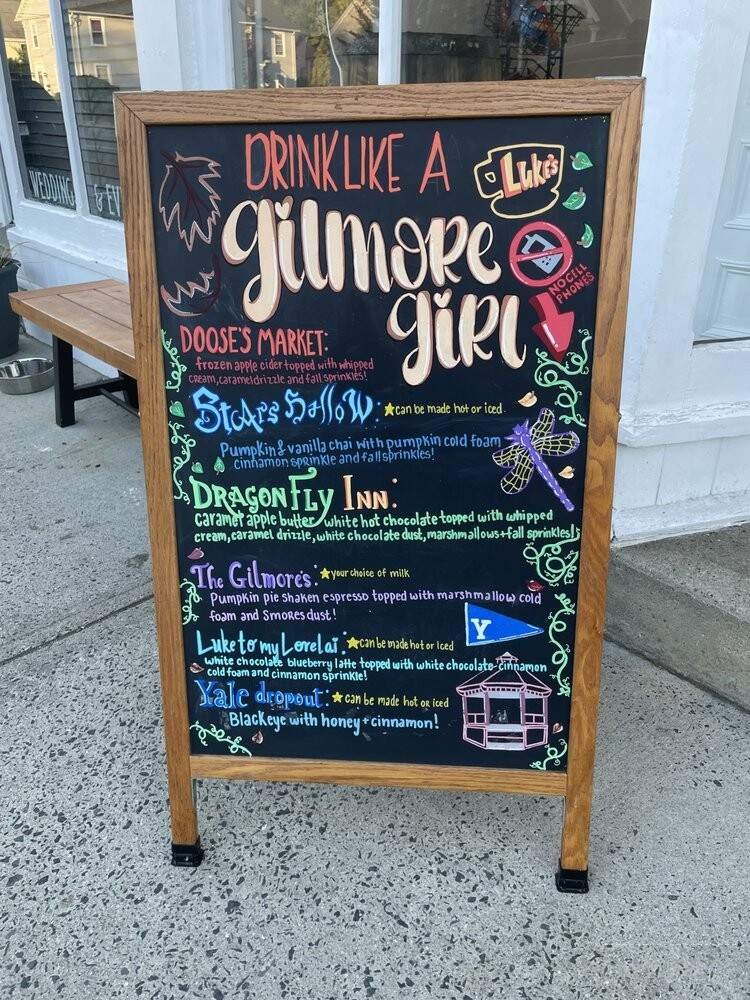 WEDDING
& EV
DRINK LIKE A
gilmore
girl
Luke's
NO CELL
PHONES
DOOSE'S MARKET:
frozen apple cider topped with whipped
cream, caramel drizzle and fall sprinkles!
Stars Hollow: ★can be made hot or iced.
Pumpkin & vanilla chai with pumpkin cold foam
cinnamon sprinkle and fall sprinkles!
DRAGONFLY INN:
caramel apple butter, white hot chocolate topped with whipped
cream, caramel drizzle, white chocolate dust, marshmallows + fall sprinkles!
The Gilmore's: ★your choice of milk
Pumpkin pie shaken espresso topped with marshmallow cold
foam and Smores dust!
Y
Luke to my Lorelai: ★can be made hot or iced
white chocolate blueberry latte topped with white chocolate-cinnamon
cold foam and cinnamon sprinkle!
Yale dropout: ★can be made hot or iced
Blackeye with honey + cinnamon!